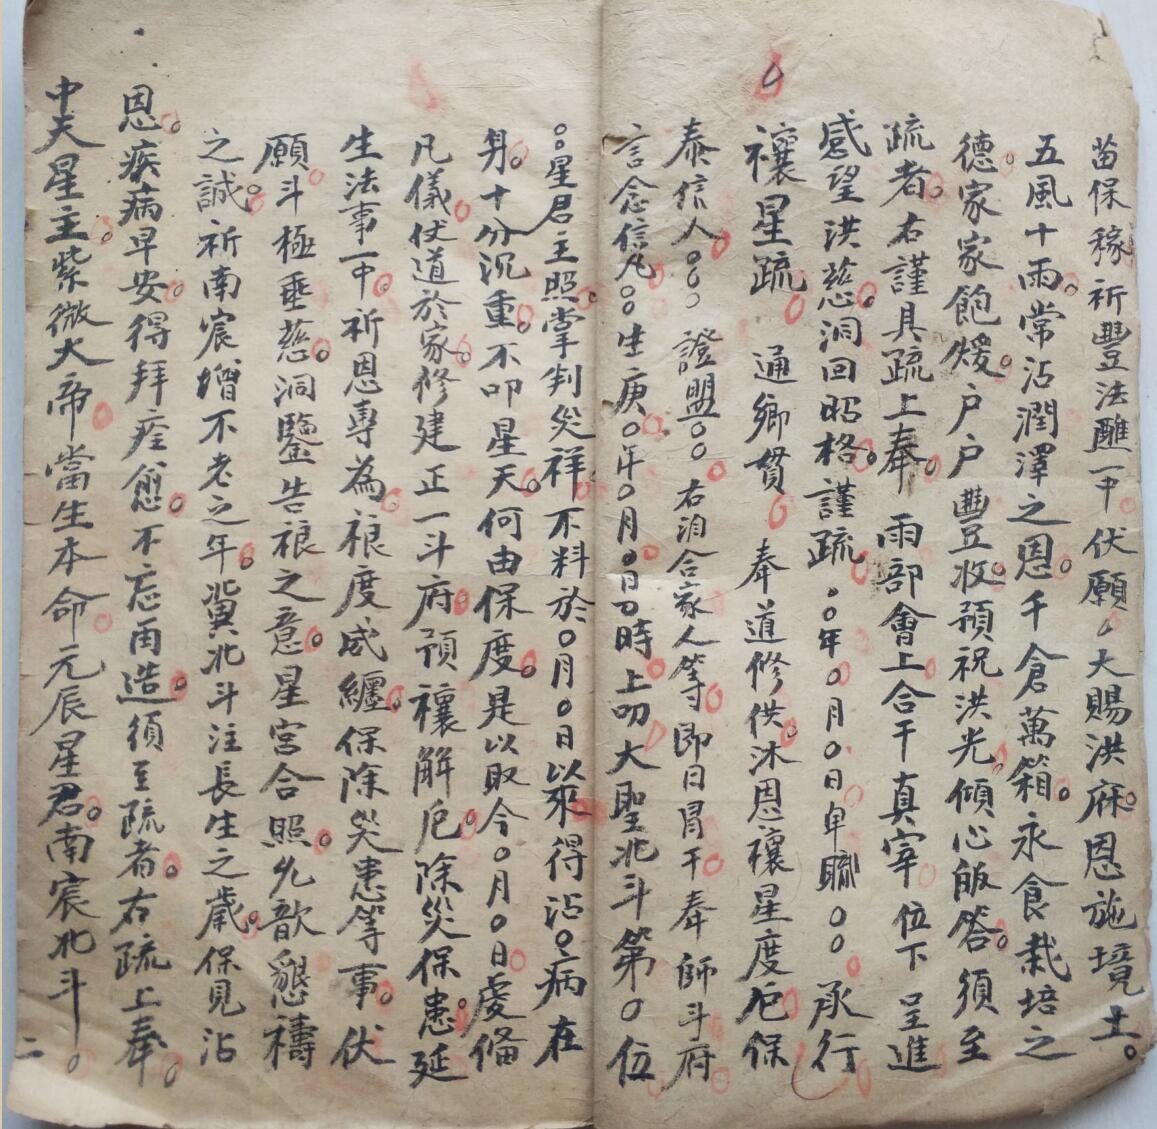 苗保稼祈豐法醮一中伏願大賜洪庥恩施境土
五風十雨常沾潤澤之恩千倉萬箱永食栽培之
德家家飽煖戶戶豐收預祝洪光傾心皈答須至
疏者右謹具疏上奉 雨部會上合干真宰位下呈進
感望洪慈洞回昭格謹疏 ○○年○月○日卑職○○承行
禳星疏 通鄉貫 奉道修供沐恩禳星度厄保
泰信人○○○ 證盟○○ 右洎合家人等即日冒干奉師斗府
言念信凡○○生庚○年○月○日○時上叨大聖北斗第○位
○星君主照掌判災祥不料於○月○日以來得沾○病在
身十分沉重不叩星天何由保度是以取今○月○日虔備
凡儀伏道於家修建正一斗府預禳解厄除災保患延
生法事一中祈恩專為禳度咸纏保除災患等事伏
願斗極垂慈洞鑒告禳之意星宮合照允歆懇禱
之誠祈南宸增不老之年冀北斗注長生之歲保見沾
恩疾病早安得拜痊愈不忘再造須至疏者右疏上奉
中天星主紫微大帝當生本命元辰星君南宸北斗
二